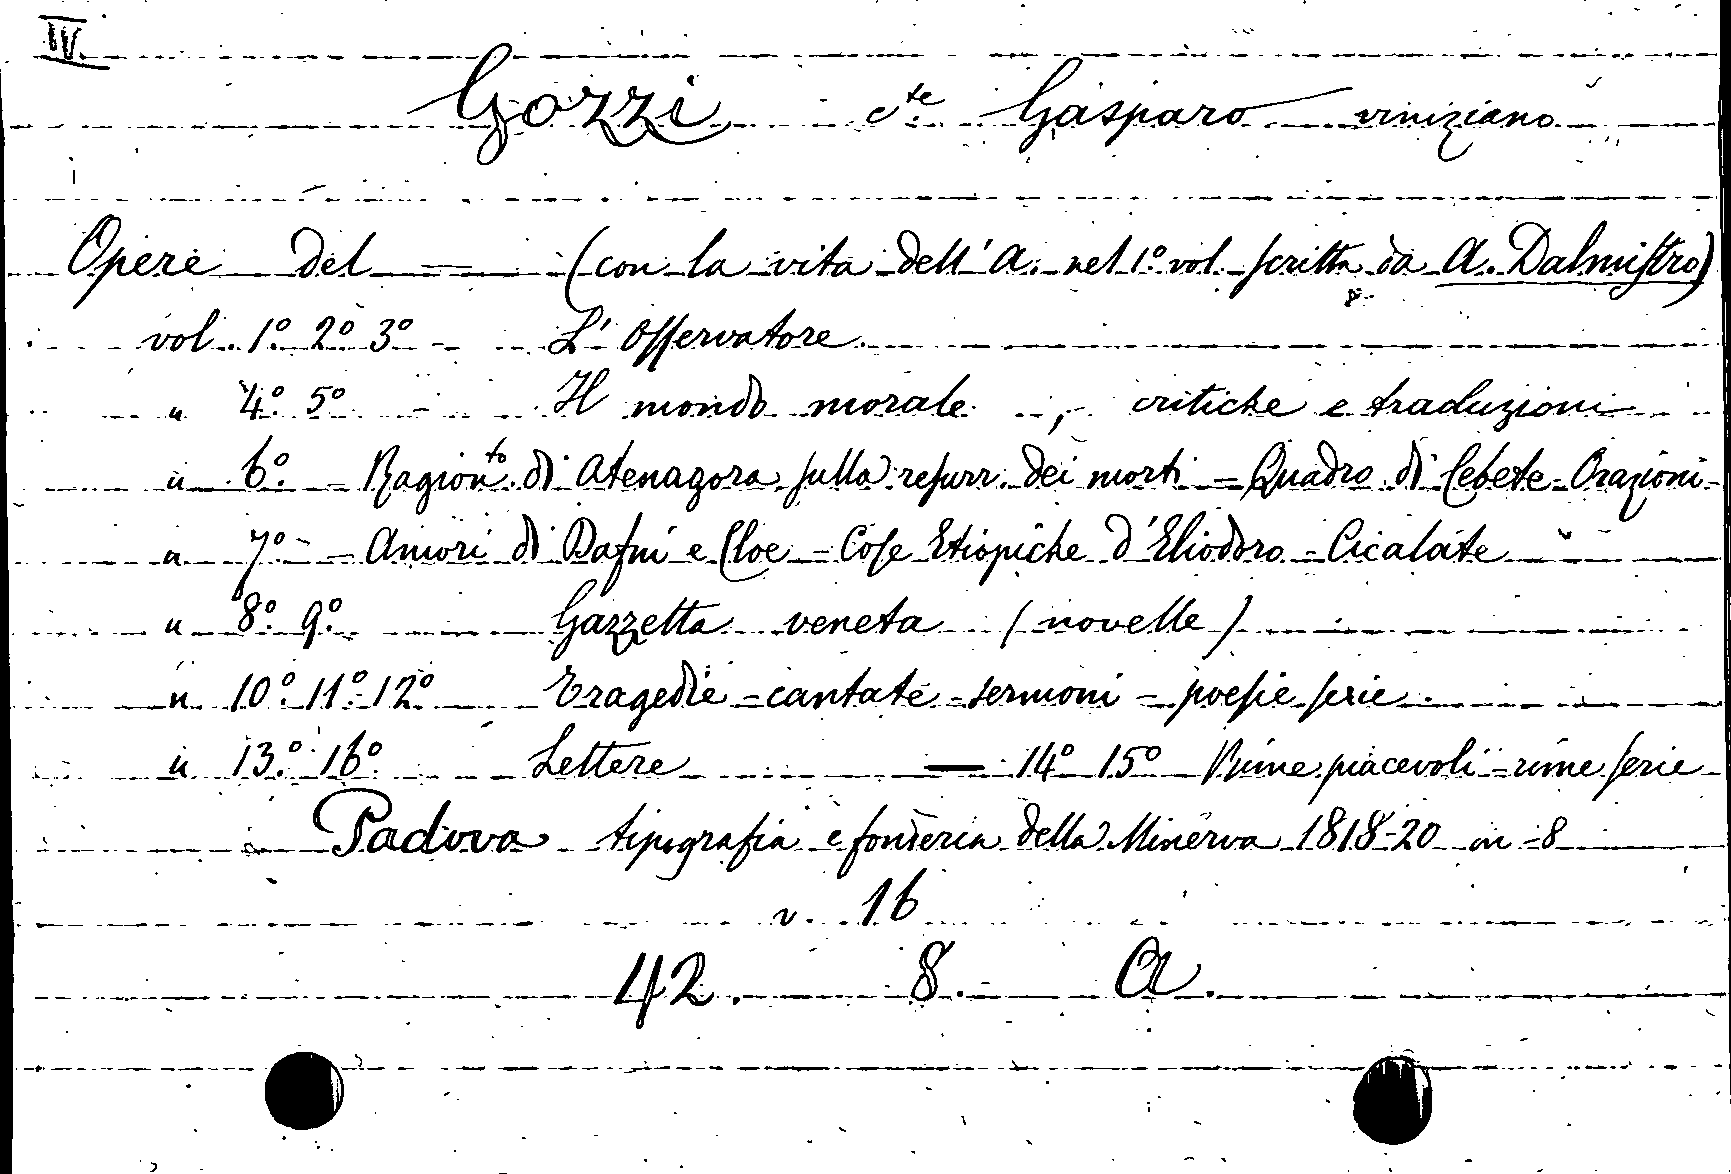 IV.
Gozzi cte. Gasparo viniziano
Opere del —— (con la vita dell' A. nel 1º vol. scritta da A. Dalmistro)
vol. 1º 2º 3º - L' Osservatore
" 4º 5º Il mondo morale, critiche e traduzioni
" 6º - Ragionto. di Atenagora sulla resurr. dei morti = Quadro di Cebete - Orazioni -
" 7º - Amori di Dafni e Cloe = Cose Etiopiche d'Eliodoro - Cicalate
" 8º 9º Gazzetta veneta (novelle)
" 10º 11º 12º Tragedie - cantate - sermoni - poesie serie
" 13º 16º Lettere — 14º 15º Rime piacevoli - rime serie
Padova tipografia e fonderia della Minerva 1818-20 in -8
v. 16
42. 8. A.